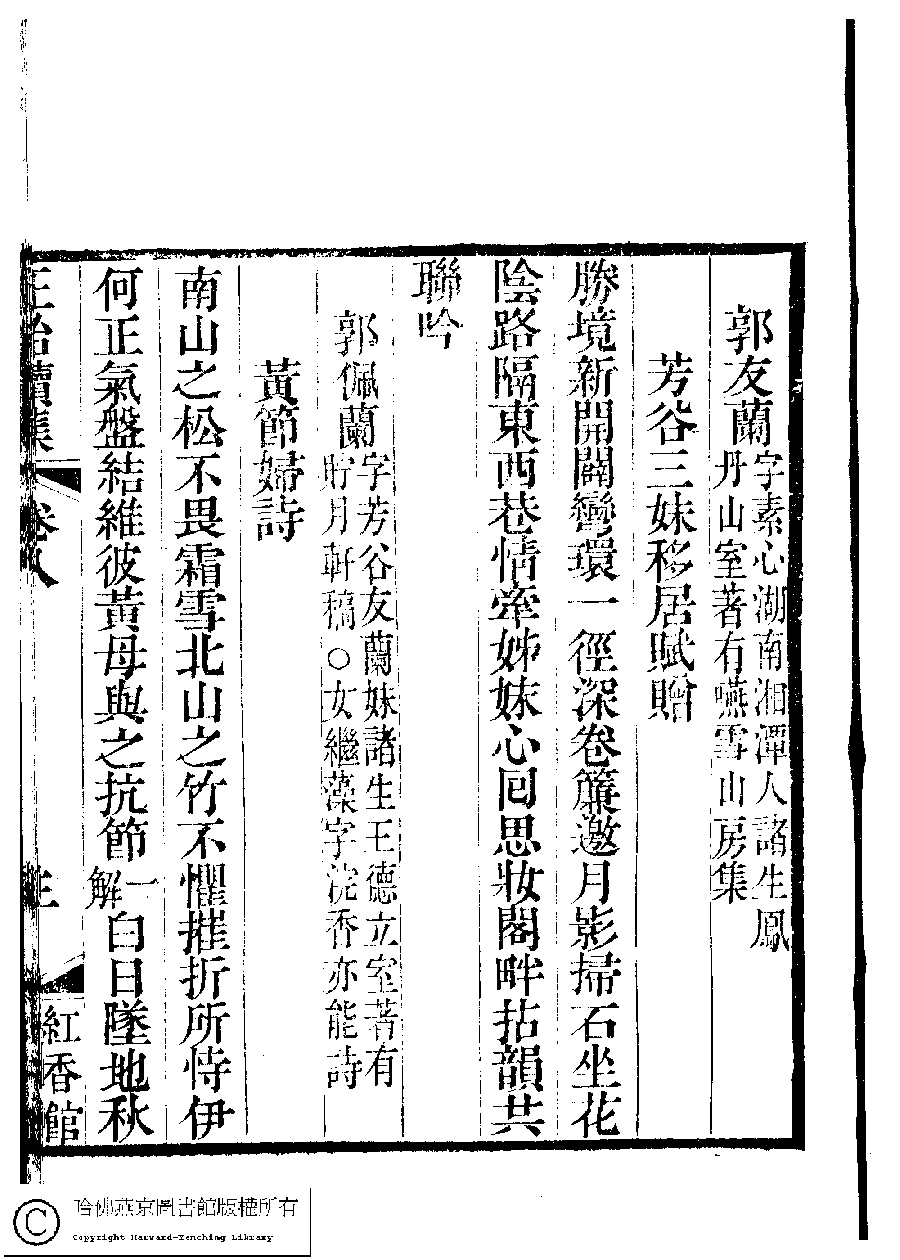 郭友蘭字素心湖南湘潭人諸生鳳
丹山室著有嚥雪山房集
芳谷三妹移居賦贈
勝境新開闢彎環一徑深卷簾邀月影掃石坐花
陰路隔東西巷情牽姊妹心囘思妝閣畔拈韻共
聯吟
郭佩蘭字芳谷友蘭妹諸生王德立室著有
貯月軒稿○女繼藻字浣香亦能詩
黃節婦詩
南山之松不畏霜雪北山之竹不懼摧折所恃伊
何正氣盤結維彼黃母與之抗節一解白日墜地秋
卷八
紅香館
哈佛燕京圖書館版權所有
Copyright Harvard-Yenching Library